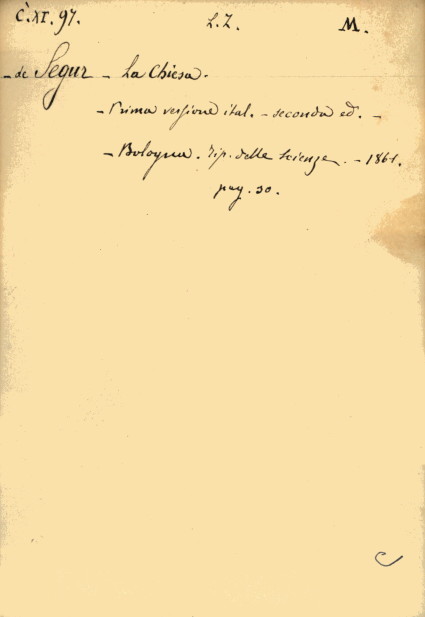 C.XI.97. L.Z. M.
- de Segur - La Chiesa.
- Prima versione ital. - seconda ed. -
- Bologna. Tip. delle Scienze. - 1861.
pag. 30.